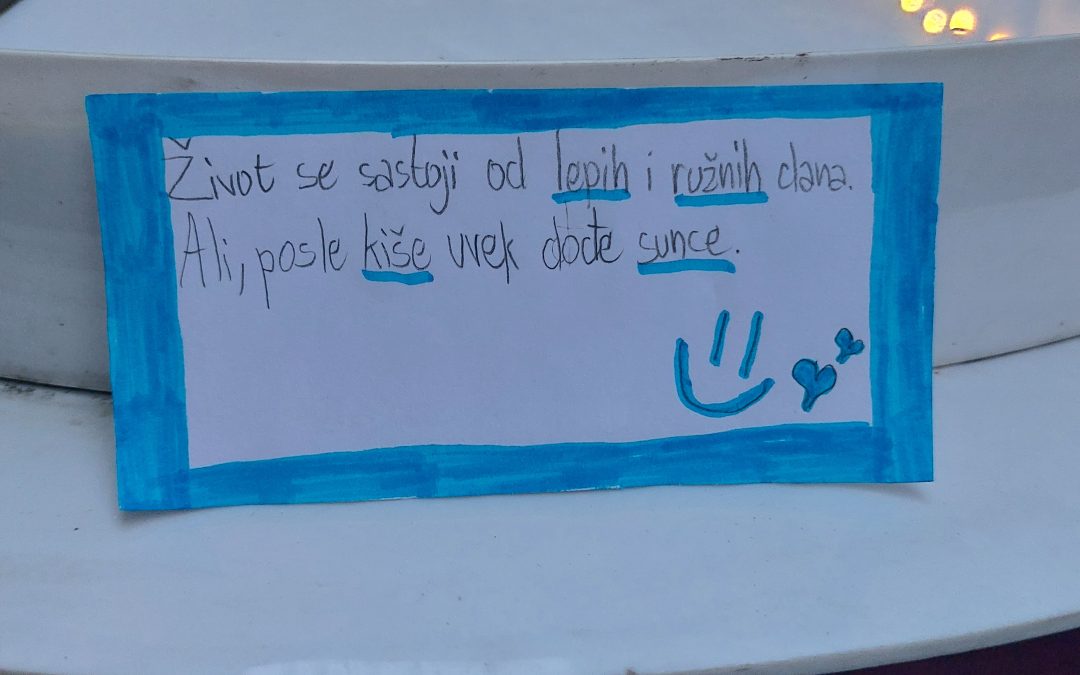 Život se sastoji od lepih i ružnih dana.
Ali, posle kiše uvek dođe sunce.